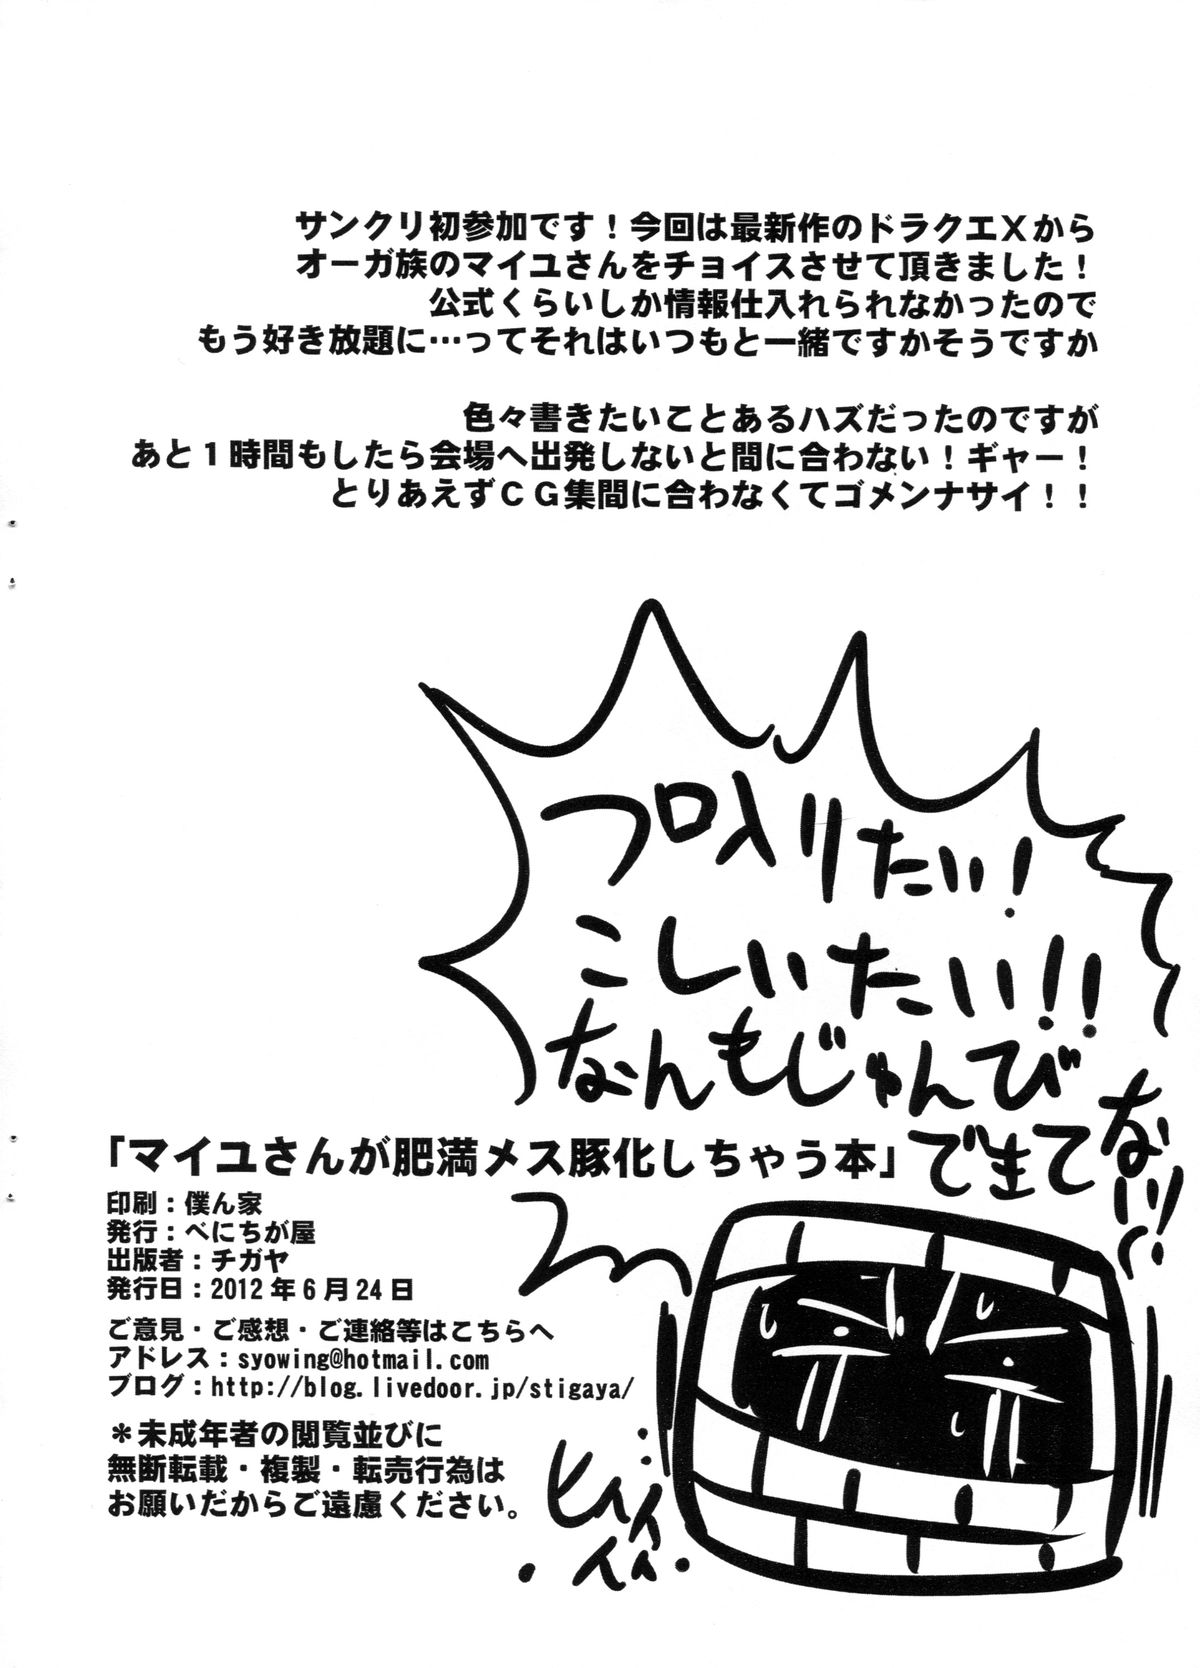 サンクリ初参加です！今回は最新作のドラクエXから
オーガ族のマイユさんをチョイスさせて頂きました！
公式くらいしか情報仕入れられなかったので
もう好き放題に…ってそれはいつもと一緒ですかそうですか
色々書きたいことあるハズだったのですが
あと１時間もしたら会場へ出発しないと間に合わない！ギャー！
とりあえずＣＧ集間に合わなくてゴメンナサイ！！
フロ入りたい！
こしいたい!!
なんもじゅんび
できて
ない!!
「マイユさんが肥満メス豚化しちゃう本」
印刷：僕ん家
発行：べにちが屋
出版者：チガヤ
発行日：2012年6月24日
ご意見・ご感想・ご連絡等はこちらへ
アドレス：syowing@hotmail.com
ブログ：http://blog.livedoor.jp/stigaya/
＊未成年者の閲覧並びに
無断転載・複製・転売行為は
お願いだからご遠慮ください。